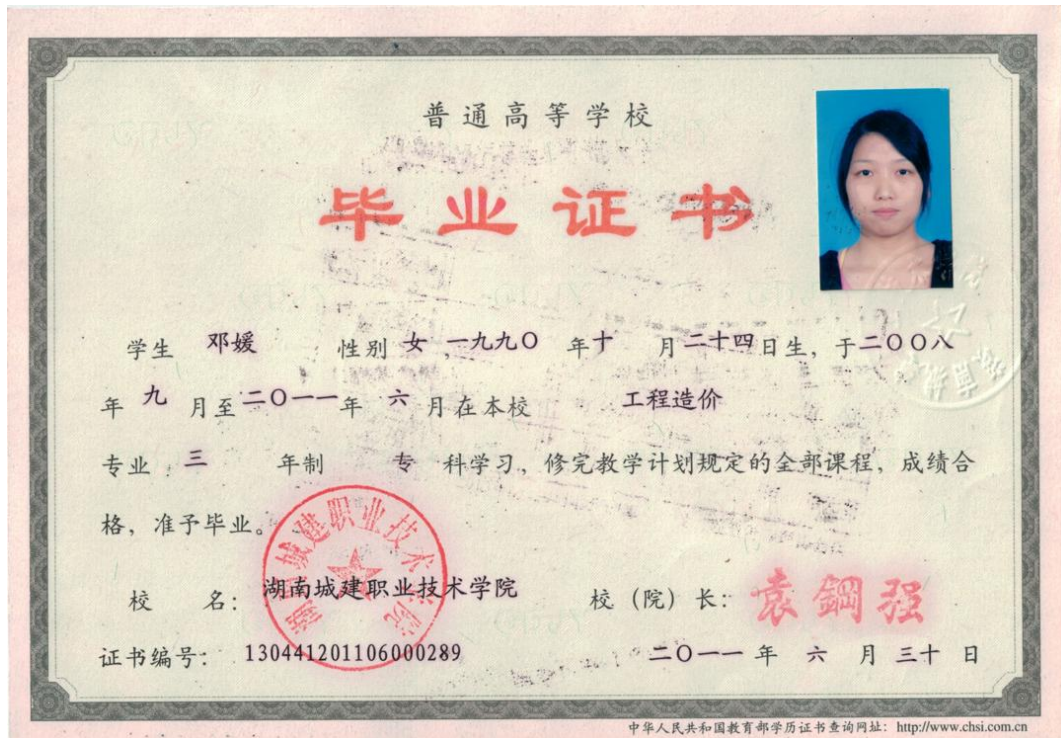 普通高等学校
毕业证书
学生 邓媛 性别 女 一九九〇 年十 月二十四日生，于二〇〇八
年 九 月至二〇一一年 六 月在本校 工程造价
专业 三 年制 专 科学习，修完教学计划规定的全部课程，成绩合
格，准予毕业。
湖南城建职业技术学院
校 名： 湖南城建职业技术学院 校（院）长： 袁鋼强
证书编号： 130441201106000289 二〇一一 年 六 月 三十 日
中华人民共和国教育部学历证书查询网址： http://www.chsi.com.cn